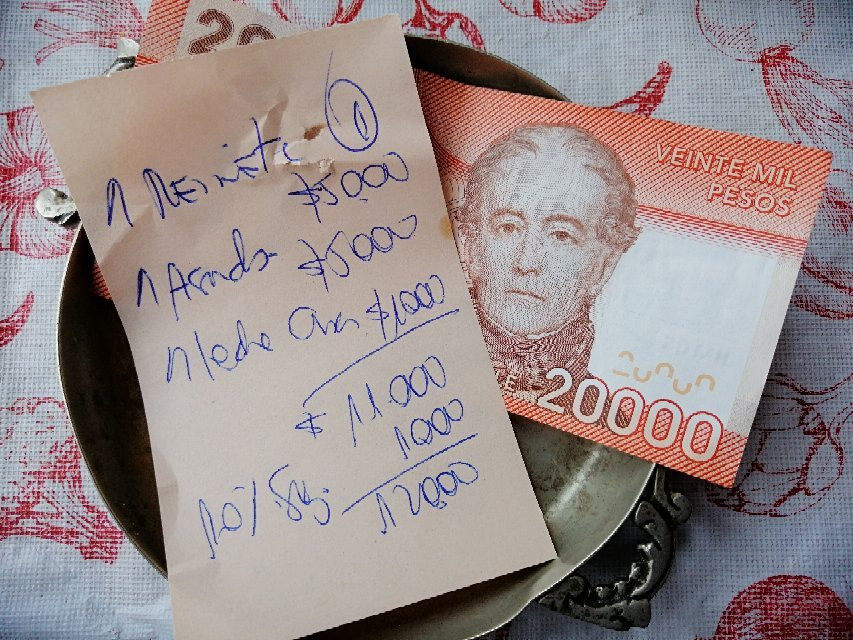 20
1
1 Reineta $5000
1 Asado $5000
1 leche Asa $1000
$ 11.000
1000
10% Sug.
12000
VEINTE MIL
PESOS
20000